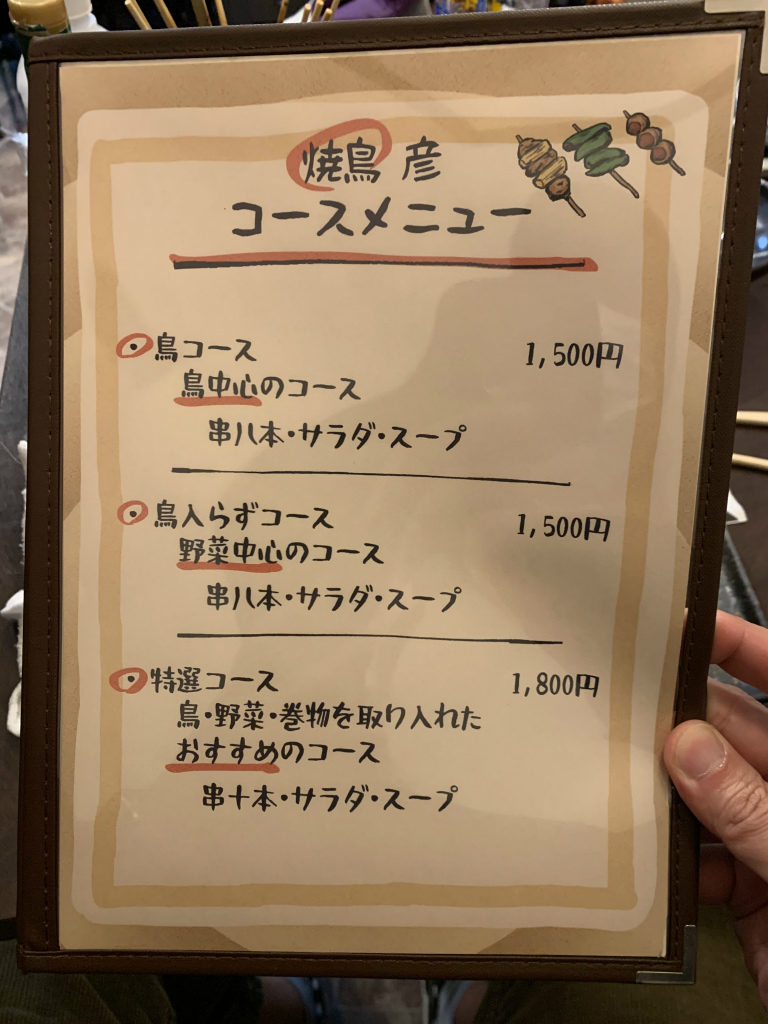 焼鳥 彦
コースメニュー
鳥コース 1,500円
鳥中心のコース
串八本・サラダ・スープ
鳥入らずコース 1,500円
野菜中心のコース
串八本・サラダ・スープ
特選コース 1,800円
鳥・野菜・巻物を取り入れた
おすすめのコース
串十本・サラダ・スープ